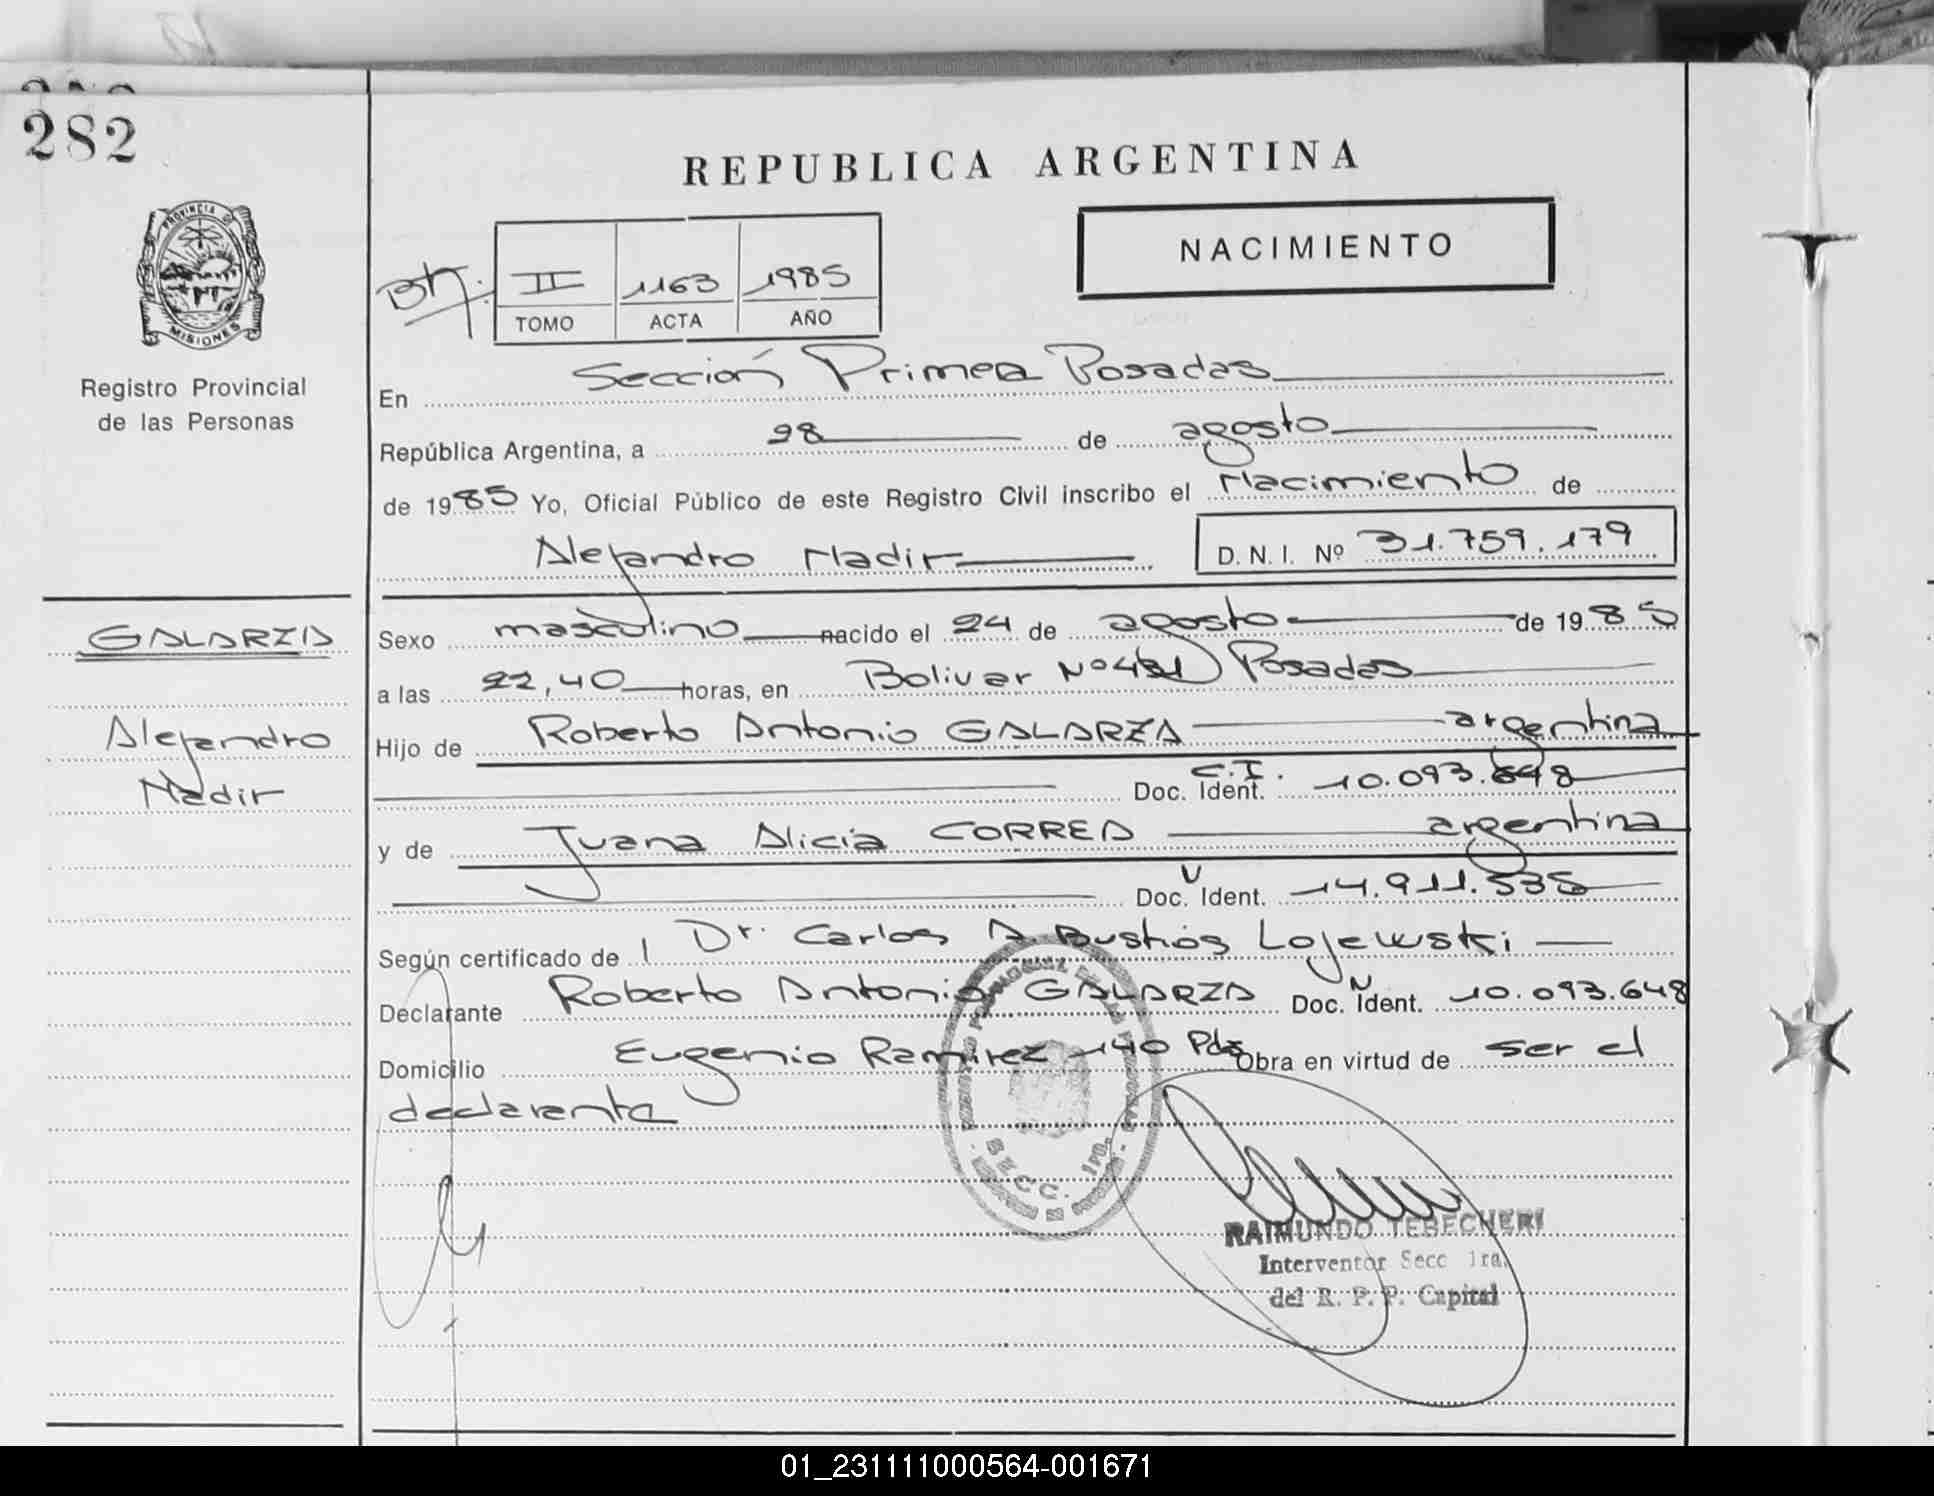 282
REPUBLICA ARGENTINA
PROVINCIA DE
MISIONES
Registro Provincial
de las Personas
II 1163 1985
TOMO ACTA AÑO
NACIMIENTO
En Sección Primera Posadas
República Argentina, a 28 de agosto
de 1985 Yo, Oficial Público de este Registro Civil inscribo el Nacimiento de
Alejandro Nadir D. N. I. Nº 31.759.179
GALARZA
Alejandro
Nadir
Sexo masculino nacido el 24 de agosto de 1985
a las 22,40 horas, en Bolivar Nº Posadas
Hijo de Roberto Antonio GALARZA argentina
C.I.
Doc. Ident. 10.093.648
y de Juana Alicia CORREA argentina
Doc. Ident. 14.911.535
Según certificado de Dr. Carlos A. Bustos Lojewski
Declarante Roberto Antonio GALARZA Doc. N Ident. 10.093.648
Domicilio Eugenio Ramirez 140 Pdas Obra en virtud de ser el
declarante
REGISTRO PROVINCIAL DE LAS PERSONAS
SECC. 1ra.
RAIMUNDO TEBECHERI
Interventor Secc 1ra.
del R. P. P. Capital
01_231111000564-001671